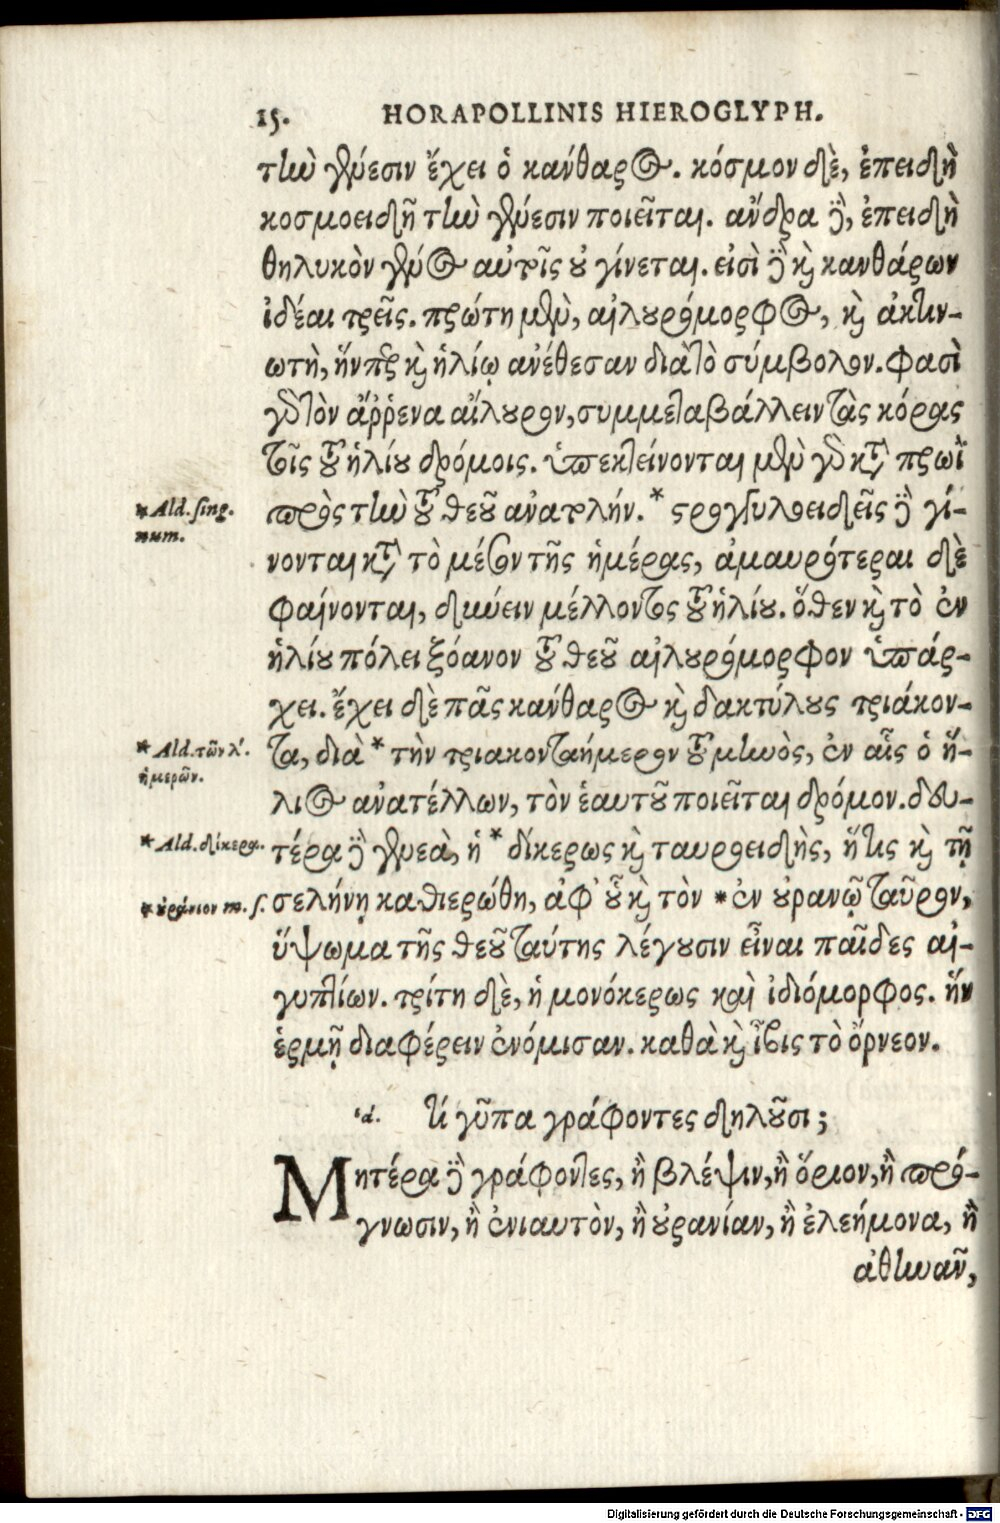 15. HORAPOLLINIS HIEROGLYPH.
τὴν γένεσιν ἔχει ὁ κάνθαρος. κόσμον δὲ, ἐπειδὴ
κοσμοειδῆ τὴν γένεσιν ποιεῖται. ἄνδρα δὲ, ἐπειδὴ
θηλυκὸν γένος αὐτοῖς οὐ γίνεται. εἰσὶ δὲ καὶ κανθάρων
ἰδέαι τρεῖς. πρώτη μὲν, αἰλουρόμορφος, καὶ ἀκτιν-
ωτὴ, ἥνπερ καὶ ἡλίῳ ἀνέθεσαν διὰ τὸ σύμβολον. φασὶ
γὰρ τὸν ἄῤῥενα αἴλουρον, συμμεταβάλλειν τὰς κόρας
τοῖς τοῦ ἡλίου δρόμοις. ὑπεκτείνονται μὲν γὰρ κατὰ πρωῒ
* Ald. sing. num.
πρὸς τὴν τοῦ θεοῦ ἀνατολήν. * στρογγυλοειδεῖς δὲ γί-
νονται κατὰ τὸ μέσον τῆς ἡμέρας, ἀμαυρότεραι δὲ
φαίνονται, δύνειν μέλλοντος τοῦ ἡλίου. ὅθεν καὶ τὸ ἐν
ἡλίου πόλει ξόανον τοῦ θεοῦ αἰλουρόμορφον ὑπάρ-
χει. ἔχει δὲ πᾶς κάνθαρος καὶ δακτύλους τριάκον-
* Ald. τῶν λʹ. ἡμερῶν.
τα, διὰ * τὴν τριακονταήμερον τοῦ μηνὸς, ἐν αἷς ὁ ἥ-
λιος ἀνατέλλων, τὸν ἑαυτοῦ ποιεῖται δρόμον. δευ-
* Ald. δίκερα.
τέρα δὲ γενεὰ, ἡ * δίκερως καὶ ταυροειδὴς, ἥτις καὶ τῇ
* οὐράνιον m. s.
σελήνῃ καθιερώθη, ἀφ' οὗ καὶ τὸν * ἐν οὐρανῷ ταῦρον,
ὕψωμα τῆς θεοῦ ταύτης λέγουσιν εἶναι παῖδες αἰ-
γυπτίων. τρίτη δὲ, ἡ μονόκερως καὶ ἰδιόμορφος. ἥν
ἑρμῇ διαφέρειν ἐνόμισαν. καθὰ καὶ ἶβις τὸ ὄρνεον.
ιά. τί γῦπα γράφοντες δηλοῦσι;
Μητέρα δὲ γράφοντες, ἢ βλέψιν, ἢ ὅριον, ἢ πρό-
γνωσιν, ἢ ἐνιαυτὸν, ἢ οὐρανίαν, ἢ ἐλεήμονα, ἢ
ἀθηνᾶν,
Digitalisierung gefördert durch die Deutsche Forschungsgemeinschaft - DFG